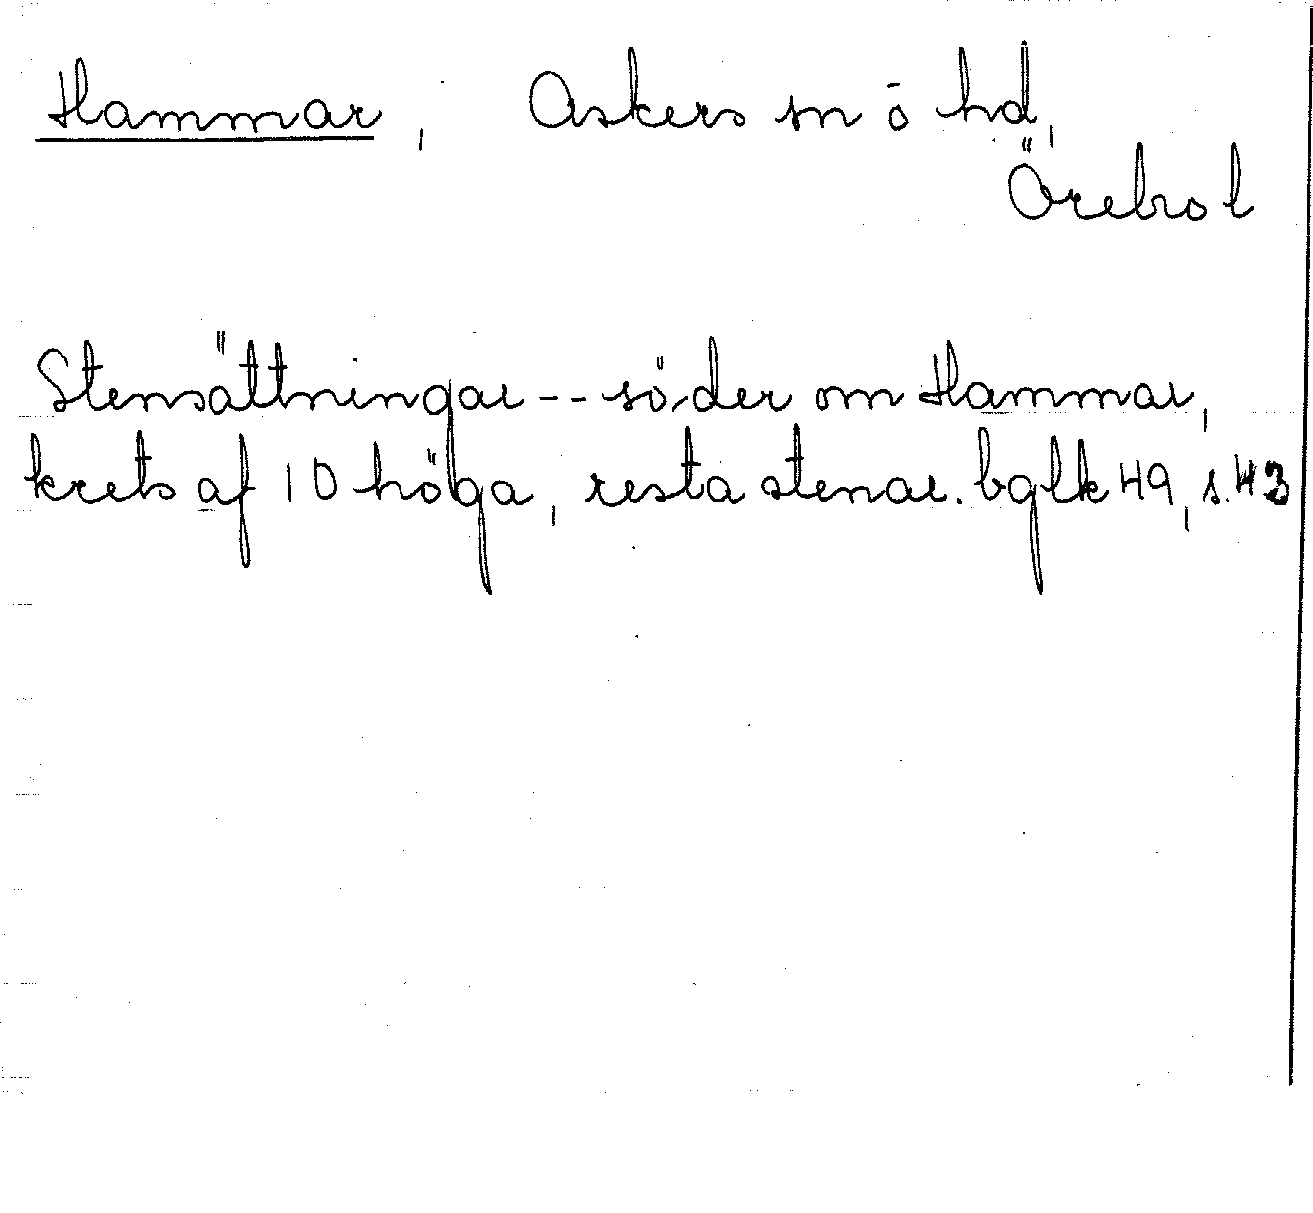 Hammar, Askers sn ō hd,
Örebro l
Stensättningar -- söder om Hammar,
krets af 10 höga, resta stenar. bglk 49, s. 43